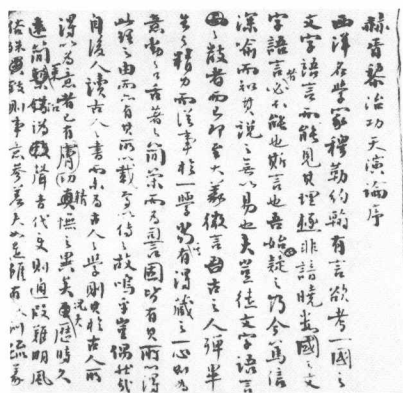 赫胥黎治功天演論序
西洋名學家穆勒約翰有言欲考一國之
文字語言而能見其理極非諳曉數國之文
字語言者必不能也斯言也吾始疑之乃今篤信
深喻而知其說之無以易也夫豈徒文字語言
之散者而已即至大義微言古之人殫畢
生之精力而從事於一學當有得藏之一心則為
意動之口舌著之簡策而為詞固皆有其所以得
此理之由而亦有其所以載焉以傳之故嗚乎豈偶然哉
自後人讀古人之書而未為古人之學則其於古人所
得以為意者已有膚切憮之異矣更況歷時久
遠簡聲古代變則通段難明風
俗殊則事意參差夫如是雖有疏義